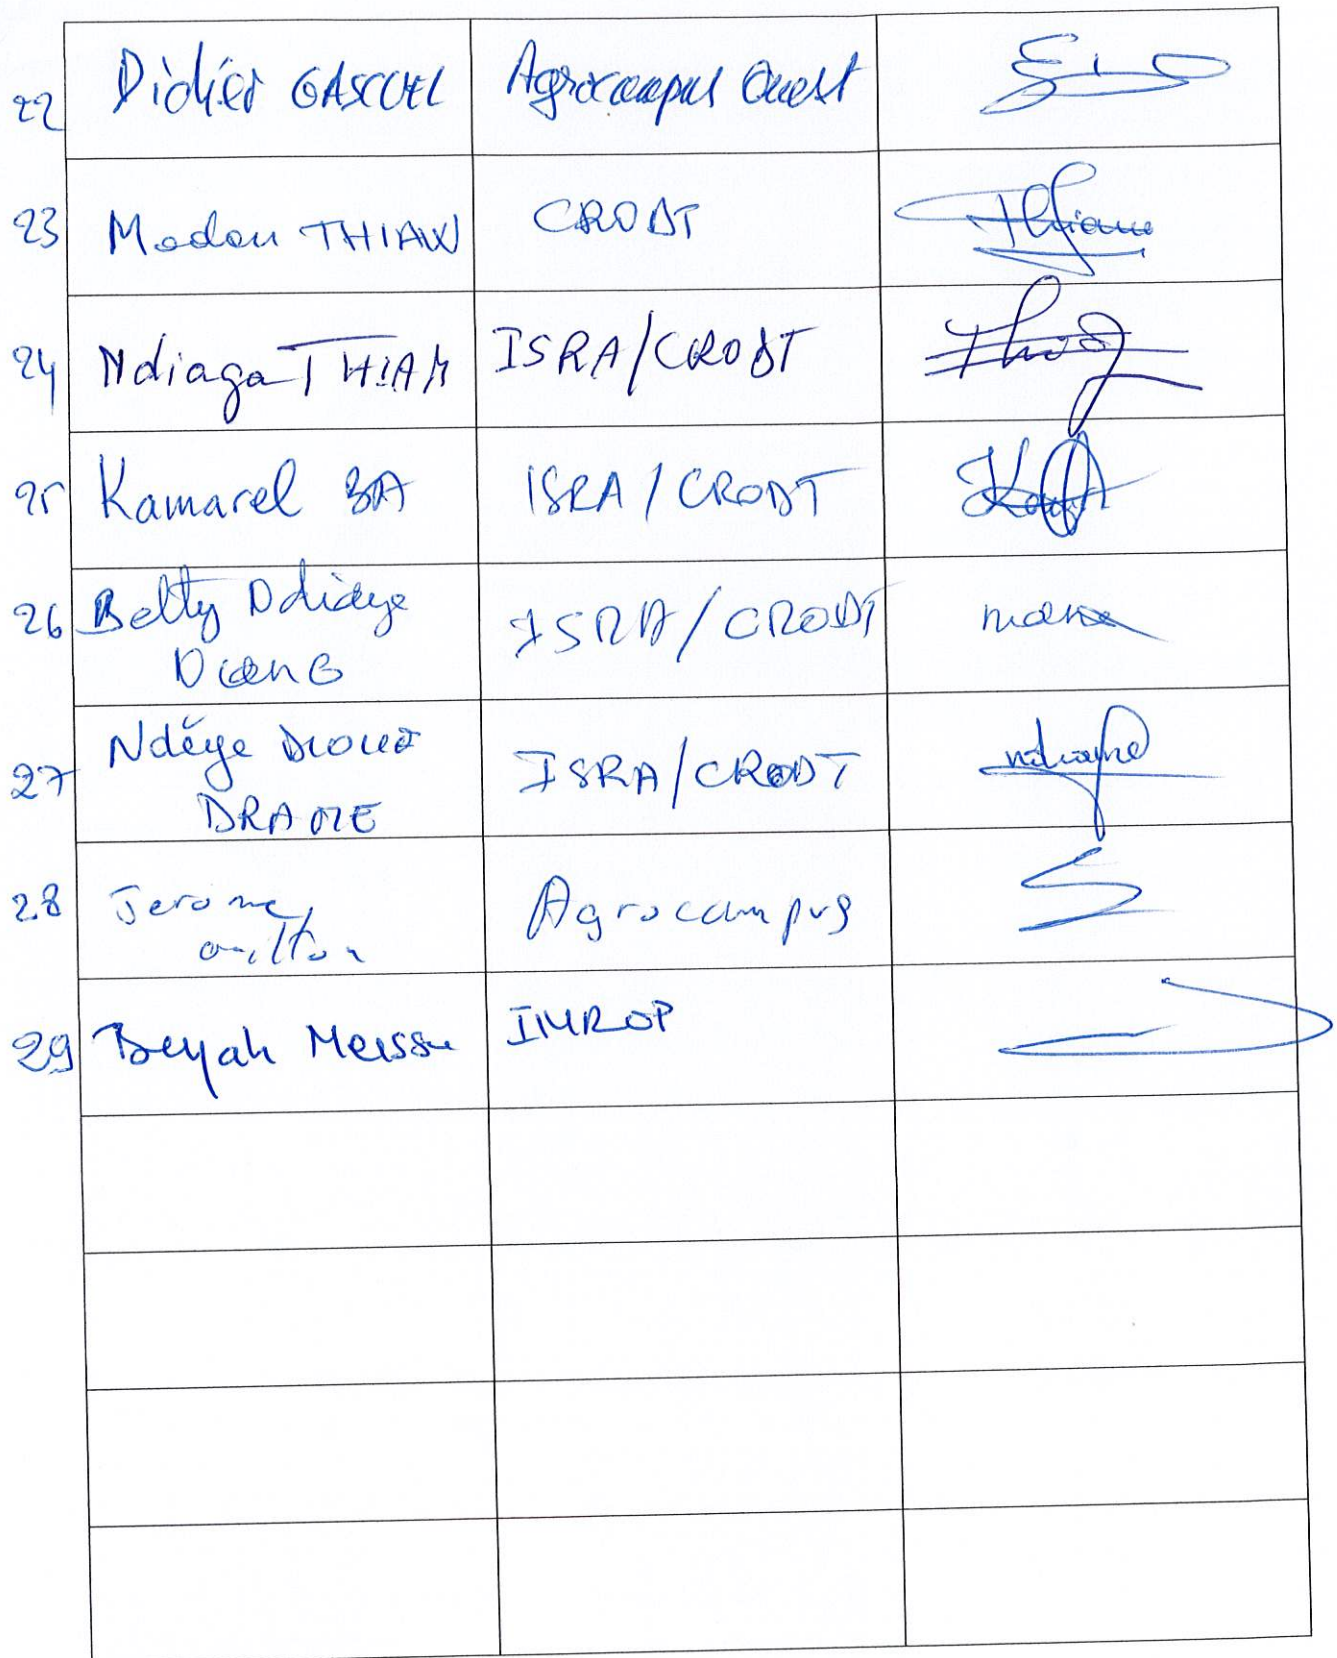 22 Didier GASCUEL Agrocampus Ouest
23 Modou THIAW CRODT
24 Ndiaga THIAM ISRA/CRODT
25 Kamarel BA ISRA/CRODT
26 Betty Ndiaye ISRA/CRODT
DIENG
27 Ndèye ISRA/CRODT
DRAME
28 Jerome Agrocampus
29 Beyah Meisse IMROP